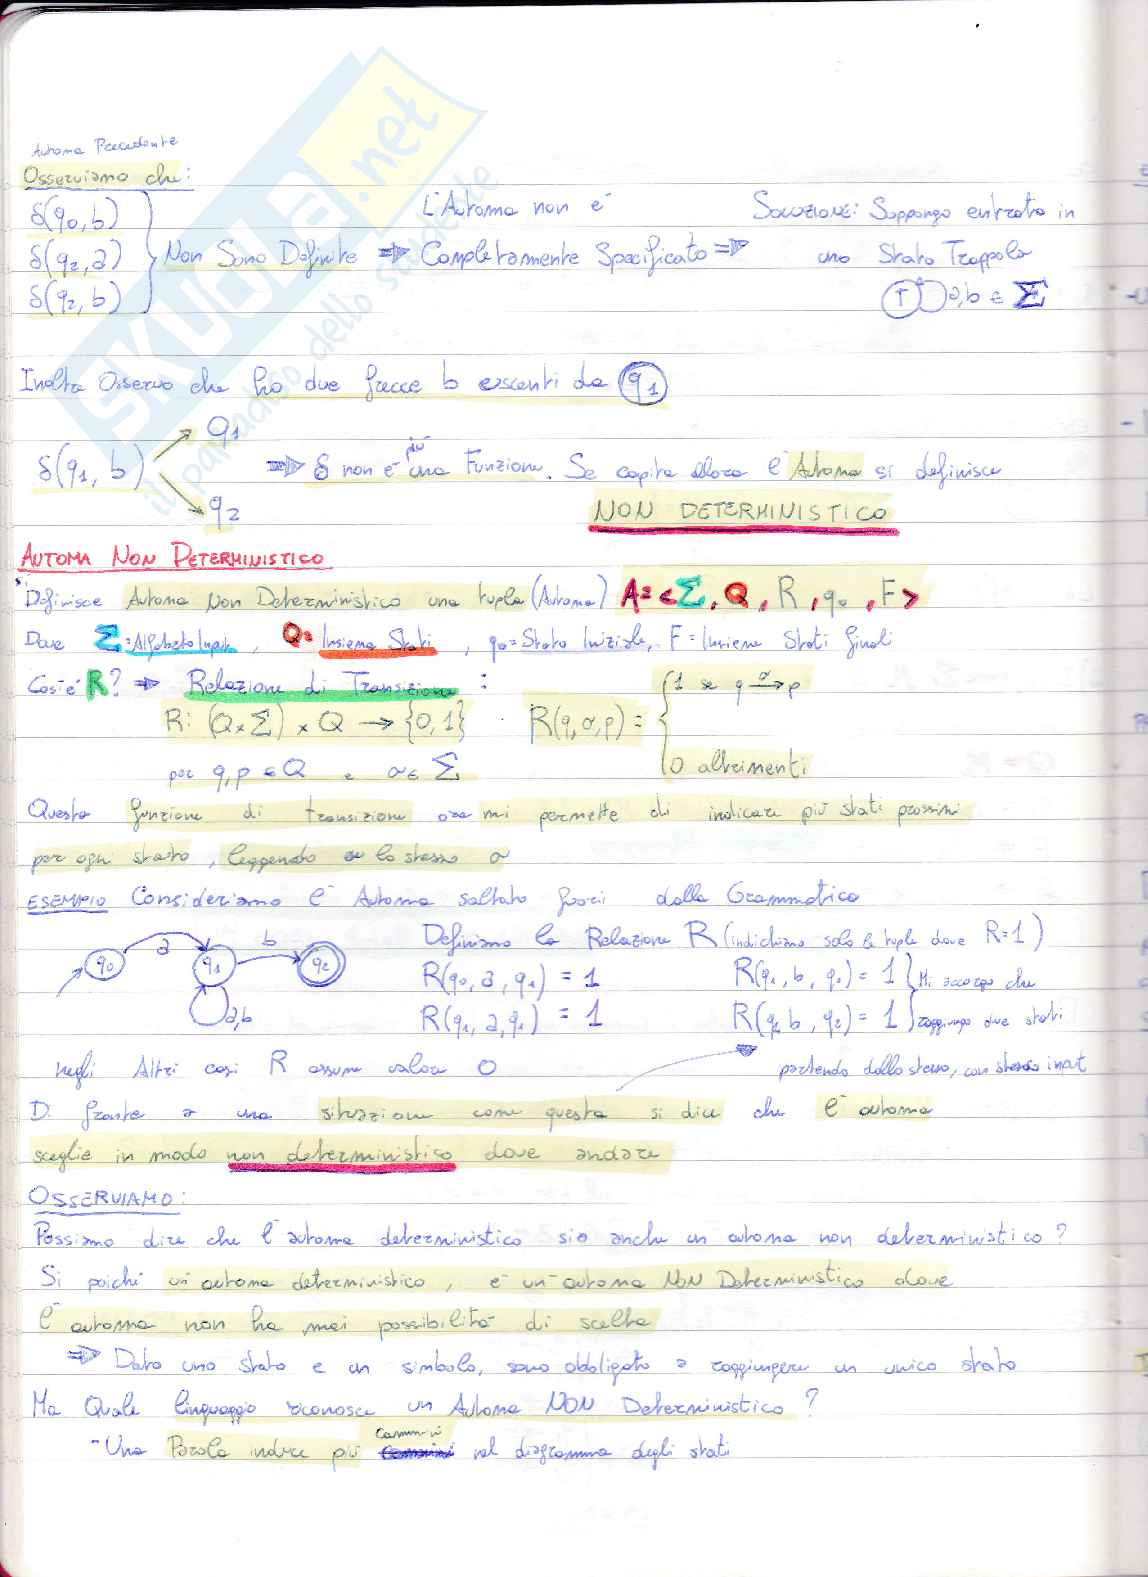 Automa Precedente
Osserviamo che:
δ(q0, b)
δ(q2, a)
δ(q2, b)
Non Sono Definite ⇒ L'Automa non è Completamente Specificato ⇒
Soluzione: Suppongo entrata in
uno Stato Trappola
T a,b ∈ Σ
Inoltre Osservo che ho due frecce b uscenti da q1
δ(q1, b)
q1
q2
⇒ δ non è più una Funzione. Se capita allora l'Automa si definisce
NON DETERMINISTICO
AUTOMA NON DETERMINISTICO
Si Definisce Automa Non Deterministico una tupla (Automa) A = < Σ, Q, R, q0, F >
Dove Σ = Alfabeto Input, Q = Insieme Stati, q0 = Stato Iniziale, F = Insieme Stati finali
Cos'è R? ⇒ Relazione di Transizione:
R: (Q × Σ) × Q → {0,1} R(q, σ, p) = { 1 se q →σ p
0 altrimenti
per q, p ∈ Q e σ ∈ Σ
Questa funzione di transizione ora mi permette di indicare più stati prossimi
per ogni stato, leggendo lo stesso σ
ESEMPIO Consideriamo l'Automa saltato fuori dalla Grammatica
q0 a q1 b q2
a,b
Definiamo la Relazione R (indichiamo solo le tuple dove R=1)
R(q0, a, q1) = 1 R(q1, b, q1) = 1 Mi accorgo che
R(q1, a, q1) = 1 R(q1, b, q2) = 1 raggiungo due stati
negli Altri casi R assume valore 0 partendo dallo stesso, con stesso input
Di fronte a una situazione come questa si dice che l'automa
sceglie in modo non deterministico dove andare
OSSERVIAMO:
Possiamo dire che l'automa deterministico sia anche un automa non deterministico?
Si poichè un automa deterministico, è un automa Non Deterministico dove
l'automa non ha mai possibilità di scelta
⇒ Dato uno stato e un simbolo, sono obbligato a raggiungere un unico stato
Ma Quale linguaggio riconosce un Automa NON Deterministico?
- Una Parola induce più cammini nel diagramma degli stati
SKUOLA.net
il paradiso dello studente